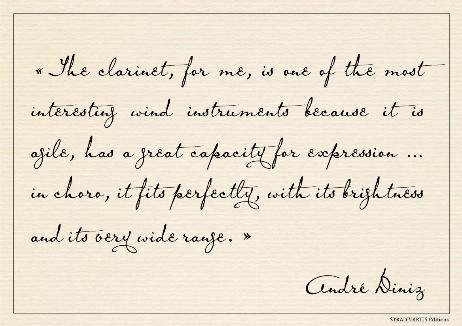 « The clarinet, for me, is one of the most
interesting wind instruments because it is
agile, has a great capacity for expression ...
in choro, it fits perfectly, with its brightness
and its very wide range. »
André Diniz
STRADIVARIUS Editions